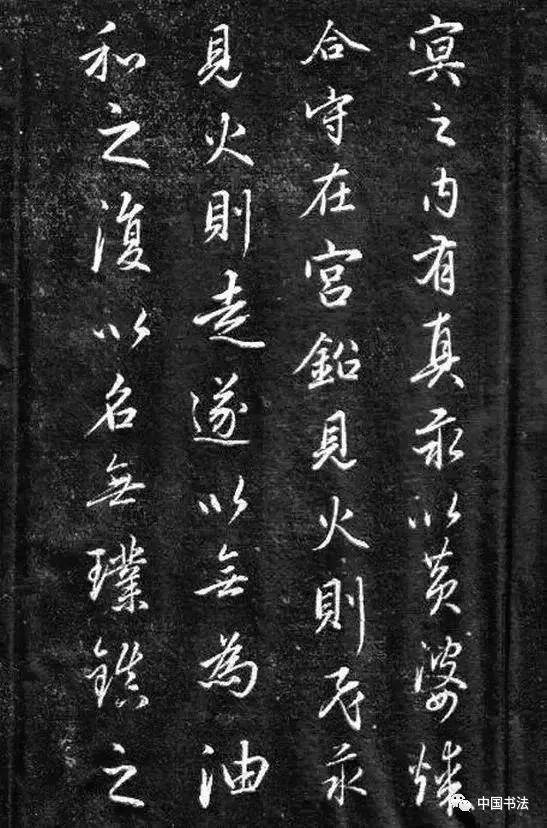 冥之内有真汞以黄婆
合守在宮鉛見火則飛汞
見火則走遂以無為油
和之復以名無璞鎮之
中国书法